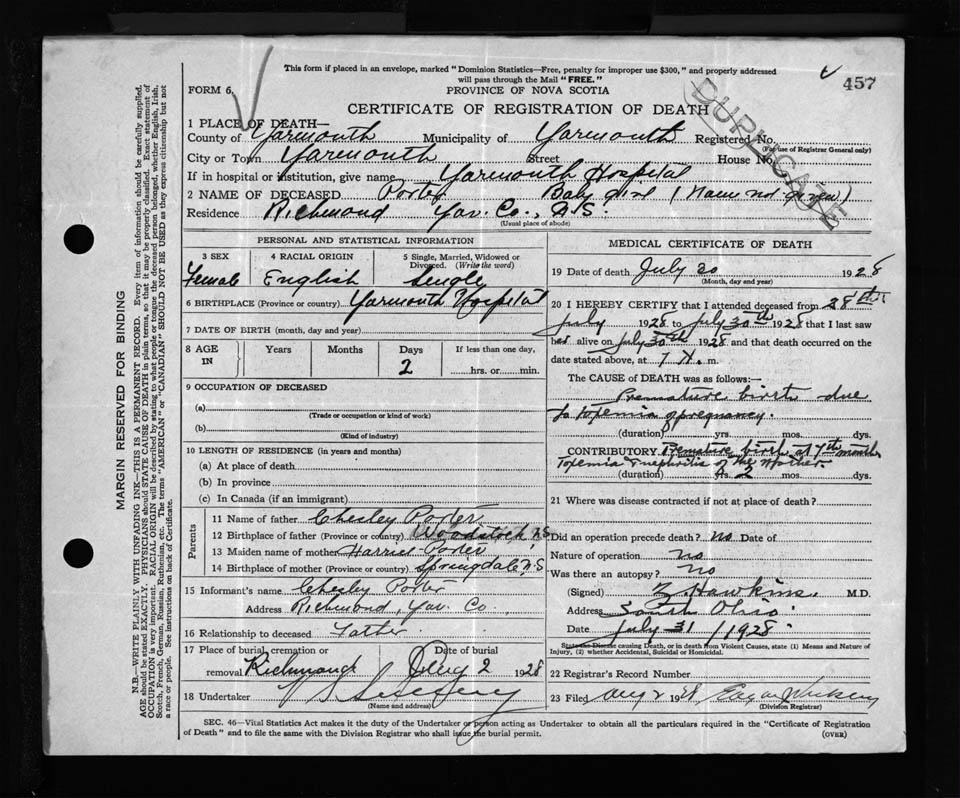 This form if placed in an envelope, marked "Dominion Statistics—Free, penalty for improper use $300," and properly addressed
will pass through the Mail "FREE."
457
FORM 6.
PROVINCE OF NOVA SCOTIA
CERTIFICATE OF REGISTRATION OF DEATH
DUPLICATE
1 PLACE OF DEATH—
County of Yarmouth Municipality of Yarmouth Registered No.
(For use of Registrar General only)
City or Town Yarmouth Street House No.
If in hospital or institution, give name Yarmouth Hospital
2 NAME OF DECEASED Porter Baby girl (Name not given)
Residence Richmond Yar. Co., N.S.
(Usual place of abode)
PERSONAL AND STATISTICAL INFORMATION
3 SEX 4 RACIAL ORIGIN 5 Single, Married, Widowed or
Divorced. (Write the word)
Female English Single
6 BIRTHPLACE (Province or country) Yarmouth Hospital
7 DATE OF BIRTH (month, day and year)
8 AGE Years Months Days If less than one day,
IN 2 hrs. or min.
9 OCCUPATION OF DECEASED
(a)
(Trade or occupation or kind of work)
(b)
(Kind of industry)
10 LENGTH OF RESIDENCE (in years and months)
(a) At place of death
(b) In province
(c) In Canada (if an immigrant)
Parents
11 Name of father Chesley Porter
12 Birthplace of father (Province or country) Woodstock N.S.
13 Maiden name of mother Harriet Porter
14 Birthplace of mother (Province or country) Springdale N.S
15 Informant's name Chesley Porter
Address Richmond, Yar. Co.
16 Relationship to deceased Father
17 Place of burial, cremation or Date of burial
removal Richmond Aug 2 1928
18 Undertaker
(Name and address)
MEDICAL CERTIFICATE OF DEATH
19 Date of death July 30 1928
(Month, day and year)
20 I HEREBY CERTIFY that I attended deceased from 28th
July 1928 to July 30th 1928 that I last saw
her alive on July 30th 1928 and that death occurred on the
date stated above, at 7 m.
The CAUSE OF DEATH was as follows:—
Premature birth due
to toxemia of pregnancy.
(duration) yrs. mos. dys.
CONTRIBUTORY Premature birth at 7th month
Toxemia & nephritis of the Mother
(duration) yrs. 2 mos. dys.
21 Where was disease contracted if not at place of death?
Did an operation precede death? no Date of
Nature of operation no
Was there an autopsy? no
(Signed) Z Hawkins M.D.
Address South Ohio
Date July 31 / 1928
State the Disease causing Death, or in death from Violent Causes, state (1) Means and Nature of
Injury, (2) whether Accidental, Suicidal or Homicidal.
22 Registrar's Record Number
23 Filed Aug 2 1928 Edgar
(Division Registrar)
SEC. 46—Vital Statistics Act makes it the duty of the Undertaker or person acting as Undertaker to obtain all the particulars required in the "Certificate of Registration
of Death" and to file the same with the Division Registrar who shall issue the burial permit.
(OVER)
MARGIN RESERVED FOR BINDING
N.B.—WRITE PLAINLY WITH UNFADING INK—THIS IS A PERMANENT RECORD. Every item of information should be carefully supplied.
AGE should be stated EXACTLY. PHYSICIANS should STATE CAUSE OF DEATH in plain terms, so that it may be properly classified. Exact statement of
OCCUPATION is very important. RACIAL ORIGIN will be described by stating to what people or tongue the deceased person belonged, whether English, Irish,
Scotch, French, German, Russian, Ruthenian, etc. The terms "AMERICAN" or "CANADIAN" SHOULD NOT BE USED as they express citizenship but not
a race or people. See instructions on back of Certificate.